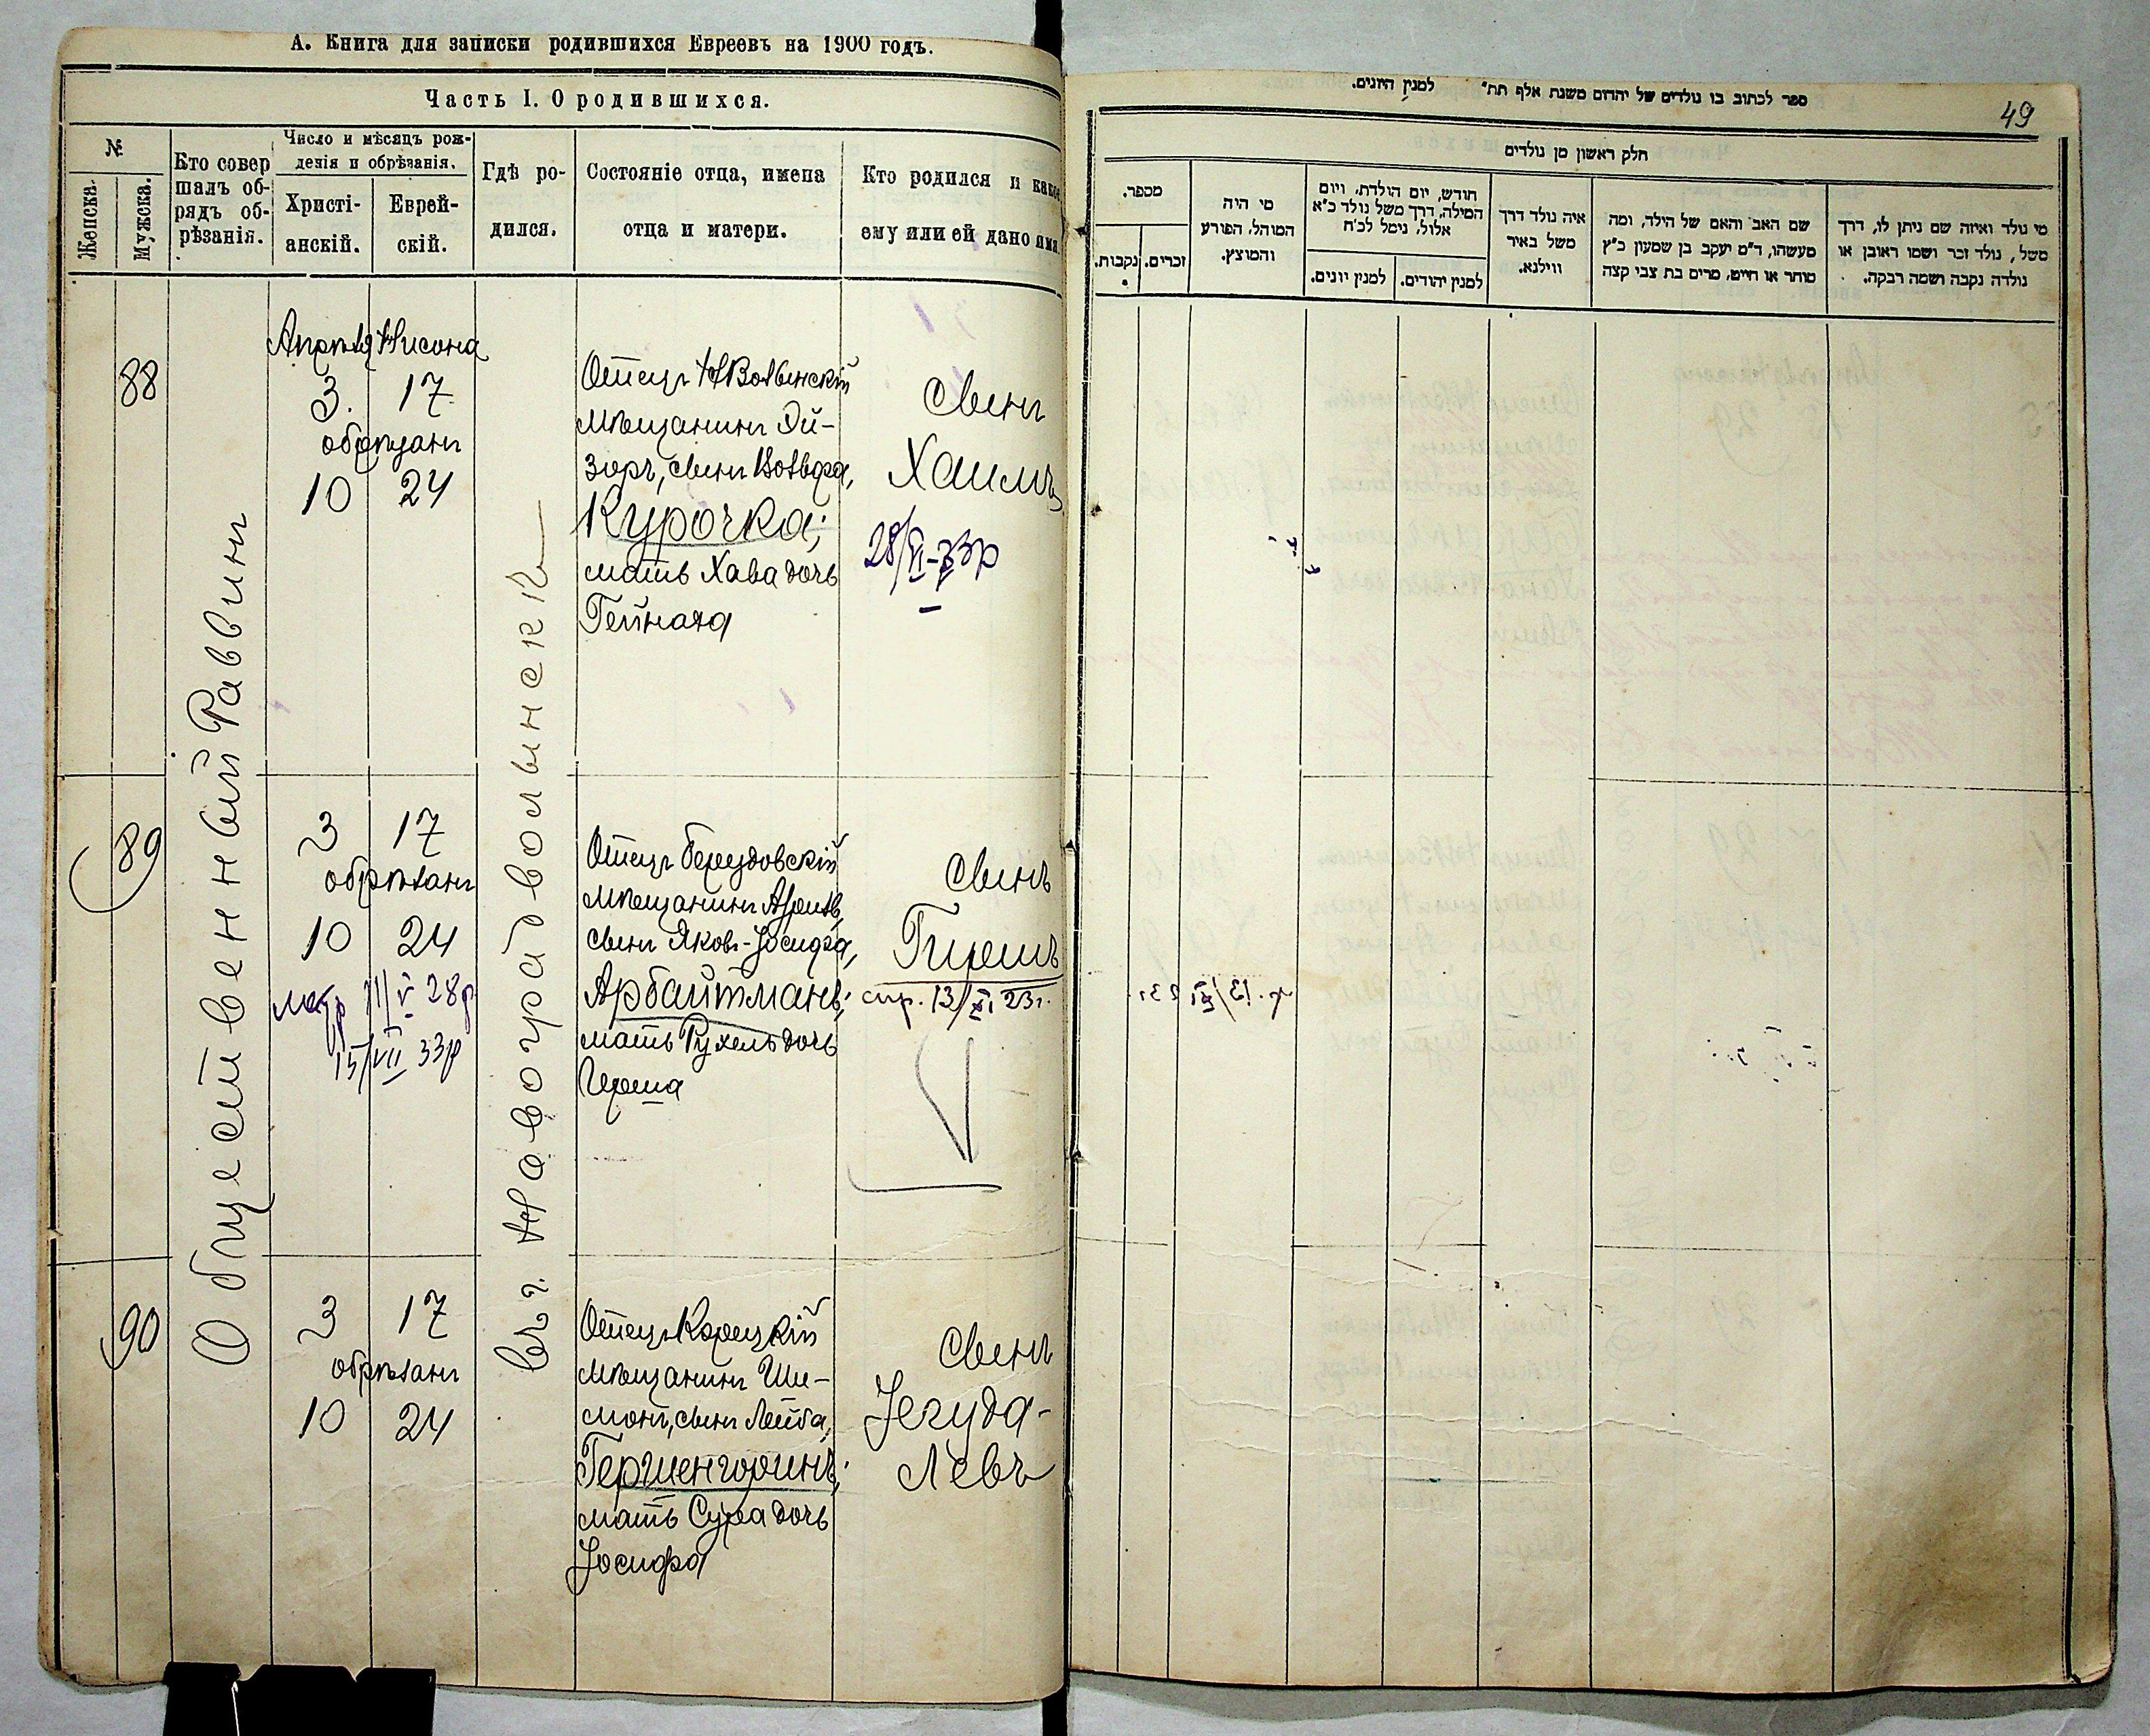 А. Книга для записки родившихся Евреевъ на 1900 годъ.
Часть I. О родившихся.
№
Женска.
Мужска.
Кто совер
шалъ об-
рядъ об-
рѣзанія.
Число и мѣсяцъ рож-
денія и обрѣзанія.
Христі-
анскій.
Еврей-
скій.
Гдѣ ро-
дился.
Состояніе отца, имена
отца и матери.
Кто родился и какое
ему или ей дано имя.
Общественный Раввинъ
Въ г. Новоградволынскѣ
Апрѣля Нисона
88
3. 17
обрѣзанъ
10 24
Отецъ НВолынскій
мѣщанинъ Эй-
зоръ, сынъ Вольфа,
Курочка;
мать Хава дочь
Гейнаха
сынъ
Хаимъ
28/XI-33р
89
3 17
обрѣзанъ
10 24
11/V 28р
15/VII 33р
Отецъ Берездовскій
мѣщанинъ
сынъ Яковъ-Іосифа,
Арбайтманъ;
мать Рухель дочь
Герша
сынъ
Гиршъ
спр. 13/XI 23г.
90
3 17
обрѣзанъ
10 24
Отецъ Корецкій
мѣщанинъ Ши-
монъ, сынъ Лейба,
Гершенгоринъ;
мать Сура дочь
Іосифа
сынъ
Іегуда-
Левъ
49
ספר לכתוב בו נולדים של יהדום משנת אלף תת״ למנין היונים.
חלק ראשון מן נולדים
מספר.
נקבות.
זכרים.
מי היה
המוהל, הפורע
והמוצץ.
חודש, יום הולדת, ויום
המילה, דרך משל נולד כ״א
אלול, נימל לכ״ח
למנין יונים.
למנין יהודים.
איה נולד דרך
משל באיר
ווילנא.
שם האב והאם של הילד, ומה
מעשהו, ד״מ יעקב בן שמעון כ״ץ
סוחר או חייט, מרים בת צבי קצה
מי נולד ואיזה שם ניתן לו, דרך
משל, נולד זכר ושמו ראובן או
נולדה נקבה ושמה רבקה.